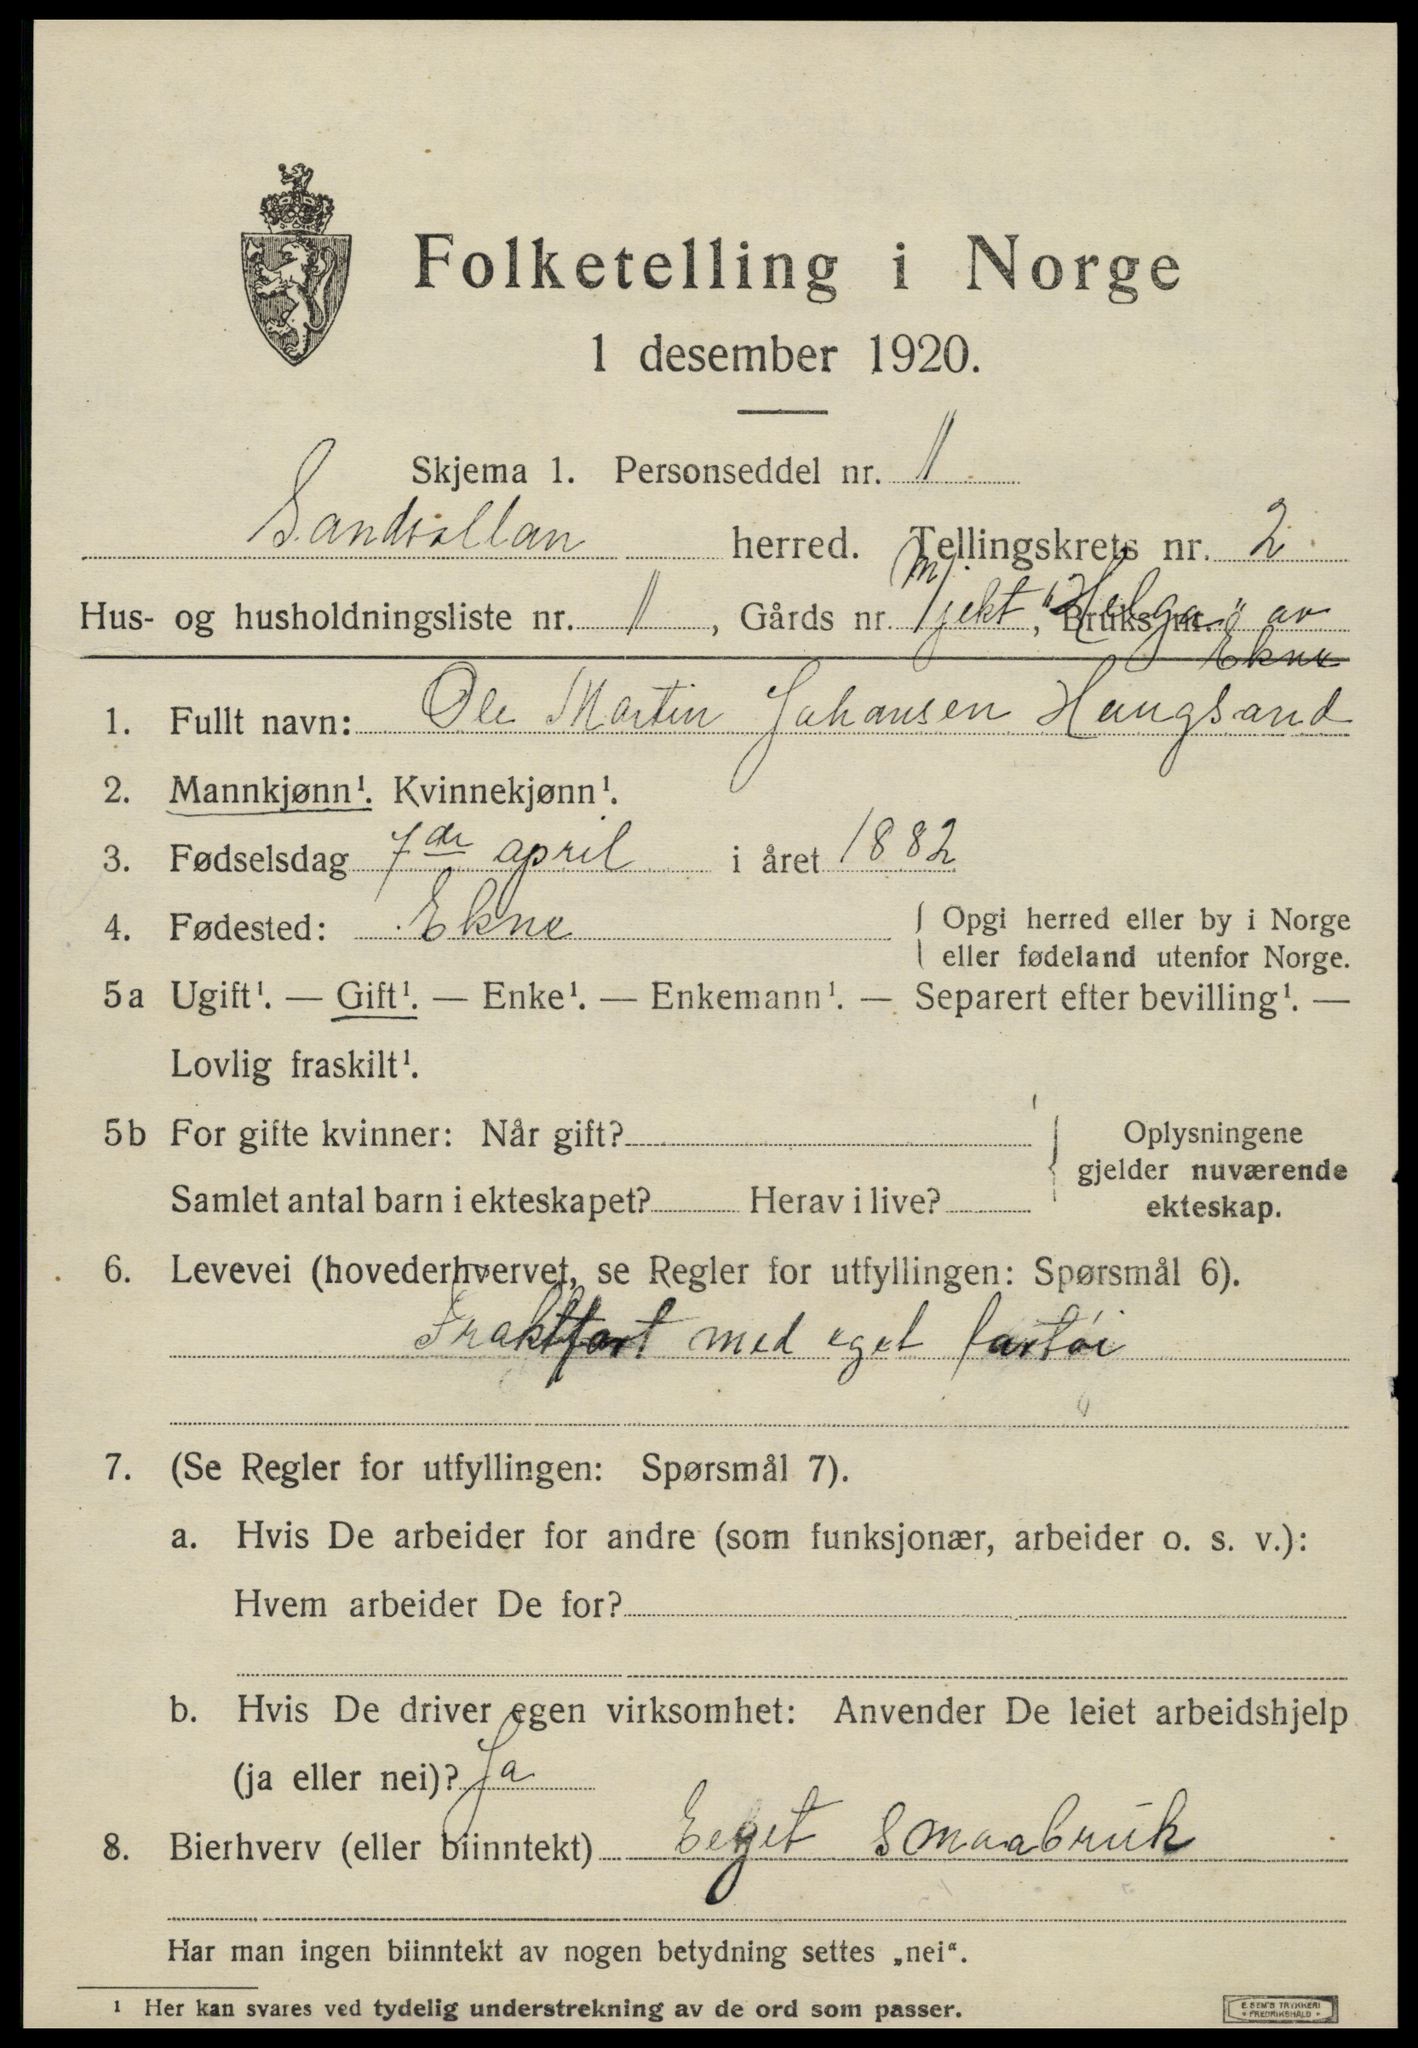 Folketelling i Norge
1 desember 1920.
Skjema 1. Personseddel nr. 1
Sandvollan herred. Tellingskrets nr. 2
Hus- og husholdningsliste nr. 1, Gårds nr. M/jekt, Bruks nr. "Helga" av
Ekne
1. Fullt navn: Ole Martin Johansen Haugsand
2. Mannkjønn¹. Kvinnekjønn¹.
3. Fødselsdag 7de april i året 1882
4. Fødested: Ekne { Opgi herred eller by i Norge
eller fødeland utenfor Norge.
5a Ugift¹. — Gift¹. — Enke¹. — Enkemann¹. — Separert efter bevilling¹. —
Lovlig fraskilt¹.
5b For gifte kvinner: Når gift? { Oplysningene
gjelder nuværende
Samlet antal barn i ekteskapet? Herav i live? ekteskap.
6. Levevei (hovederhvervet, se Regler for utfyllingen: Spørsmål 6).
Fraktfart med eget fartøi
7. (Se Regler for utfyllingen: Spørsmål 7).
a. Hvis De arbeider for andre (som funksjonær, arbeider o. s. v.):
Hvem arbeider De for?
b. Hvis De driver egen virksomhet: Anvender De leiet arbeidshjelp
(ja eller nei)? Ja
8. Bierhverv (eller biinntekt) Eeget smaabruk
Har man ingen biinntekt av nogen betydning settes „nei“.
¹ Her kan svares ved tydelig understrekning av de ord som passer.
E. SEM'S TRYKKERI
FREDRIKSHALD